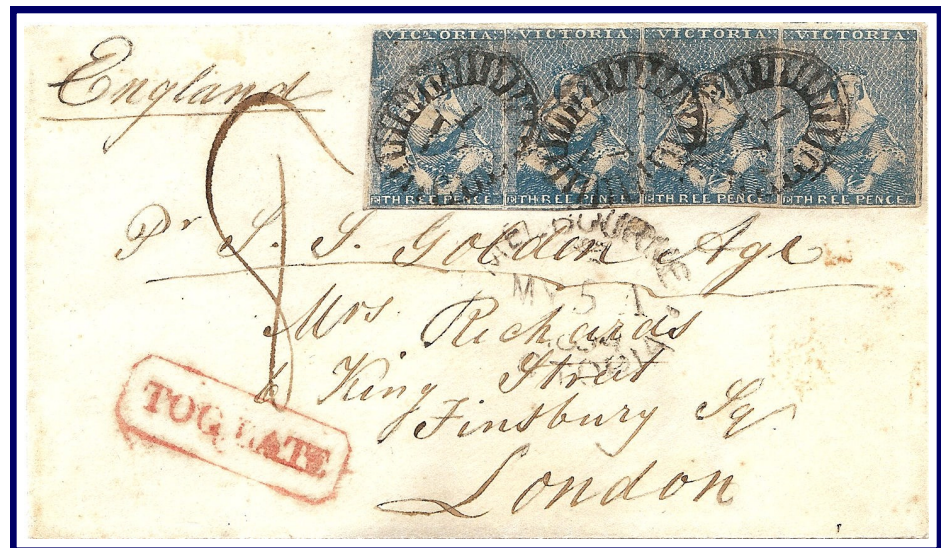 VICTORIA VICTORIA VICTORIA VICTORIA
THREE PENCE THREE PENCE THREE PENCE THREE PENCE
England
8
Pr S. S. Golden Age
MELBOURNE
MY 5
1854
Mrs. Richards
6 King Street
Finsbury Sq
London
TOO LATE